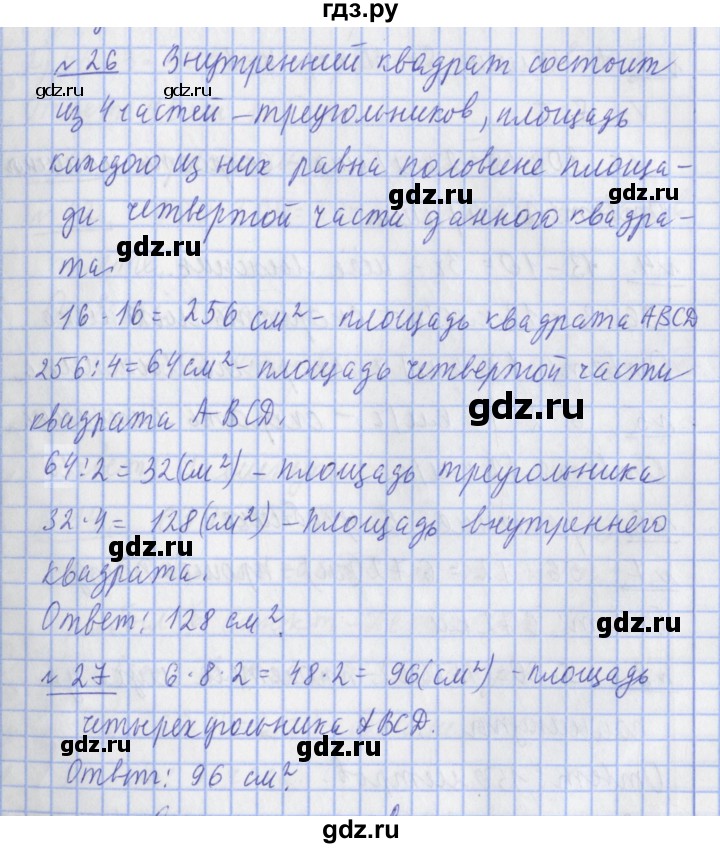 гдз.ру
№ 26 Внутренний квадрат состоит
gdz.ru
gdz.ru
из 4 частей – треугольников, площадь
каждого из них равна половине площа-
gdz.ru
gdz.ru
ди четвертой части данного квадра-
gdz.ru
та.
16 · 16 = 256 см² – площадь квадрата ABCD
256 : 4 = 64 см² – площадь четвертой части
gdz.ru
квадрата ABCD.
64 : 2 = 32 (см²) – площадь треугольника
32 · 4 = 128 (см²) – площадь внутреннего
gdz.ru
квадрата.
Ответ: 128 см².
gdz.ru
№ 27 6 · 8 : 2 = 48 · 2 = 96 (см²) – площадь
четырехугольника ABCD.
gdz.ru
Ответ: 96 см².
gdz.ru
gdz.ru